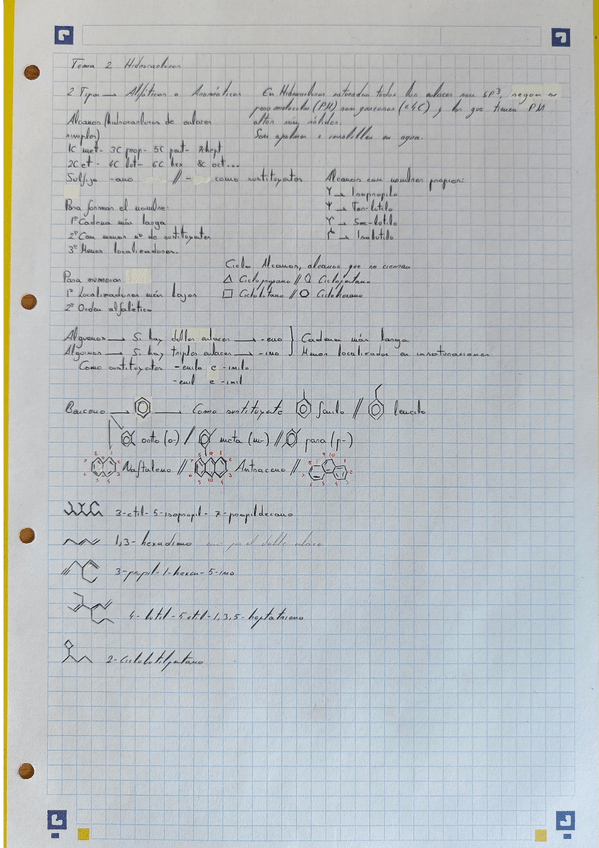 Tema 2 Hidrocarburos
2 Tipos → Alifáticos o Aromáticos
En Hidrocarburos saturados todos los enlaces son SP³,
peso molecular (PM) son gaseosos (≤4C) y los que tienen PM
altos muy sólidos.
Son apolares e insolubles en agua.
Alcanos (hidrocarburos de enlaces
simples)
1C met- 3C prop- 5C pent- 7 hept
2C et- 4C but- 6C hex 8C oct...
Sufijo -ano // - como sustituyentes
Alcanos con nombres propios:
→ Isopropilo
→ Ter-butilo
→ Sec-butilo
→ Isobutilo
Para formar el nombre:
1º Cadena más larga
2º Con mayor nº de sustituyentes
3º Menos localizadores.
Ciclo Alcanos, alcanos que se cierran
Ciclopropano // Ciclopentano
Ciclobutano // Ciclohexano
Para numerar
1º Localizadores más bajos
2º Orden alfabético
Alquenos → Si hay dobles enlaces → -eno } Cadena más larga
Alquinos → Si hay triples enlaces → -ino } Menor localizador en insaturaciones
Como sustituyentes -enilo e -inilo
-enil e -inil
Benceno → → Como sustituyente fenilo // bencilo
orto (o-) / meta (m-) // para (p-)
Naftaleno // Antraceno //
3-etil-5-isopropil-7-propildecano
1,3-hexadieno
3-propil-1-hexen-5-ino
4-butil-5-etil-1,3,5-heptatrieno
2-Ciclobutilpentano